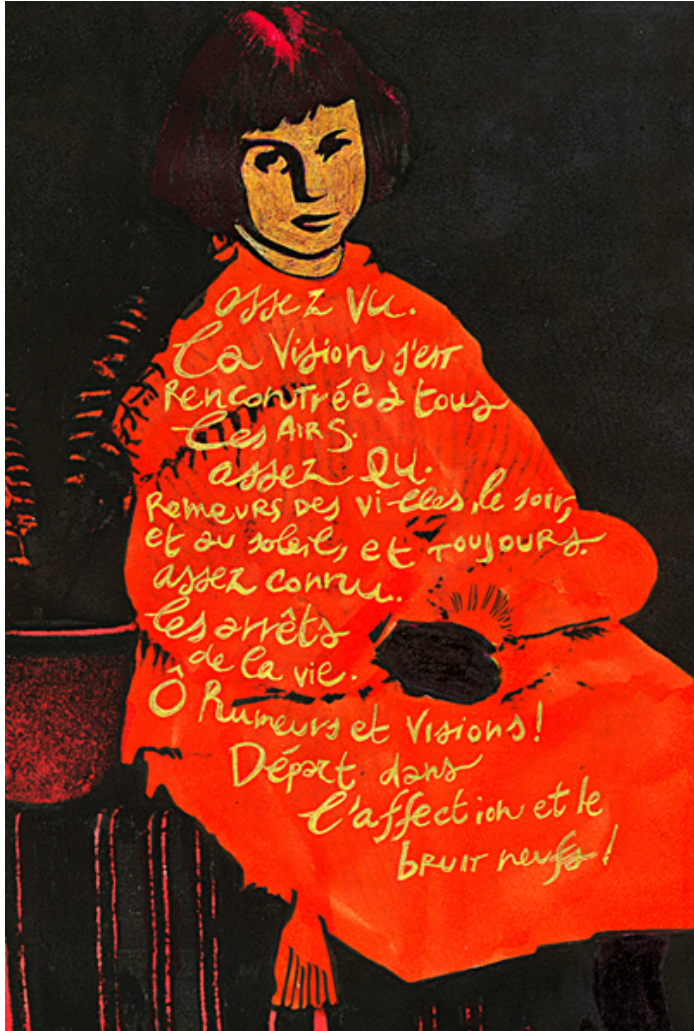 assez vu.
La Vision s'est
Rencontrée à tous
les AIRS.
assez eu.
Remeurs Des villes, le soir,
et au soleil, et TOUJOURS.
assez connu.
les arrêts
de la vie.
Ô Rumeurs et Visions !
Départ dans
l'affection et le
bruit neufs !